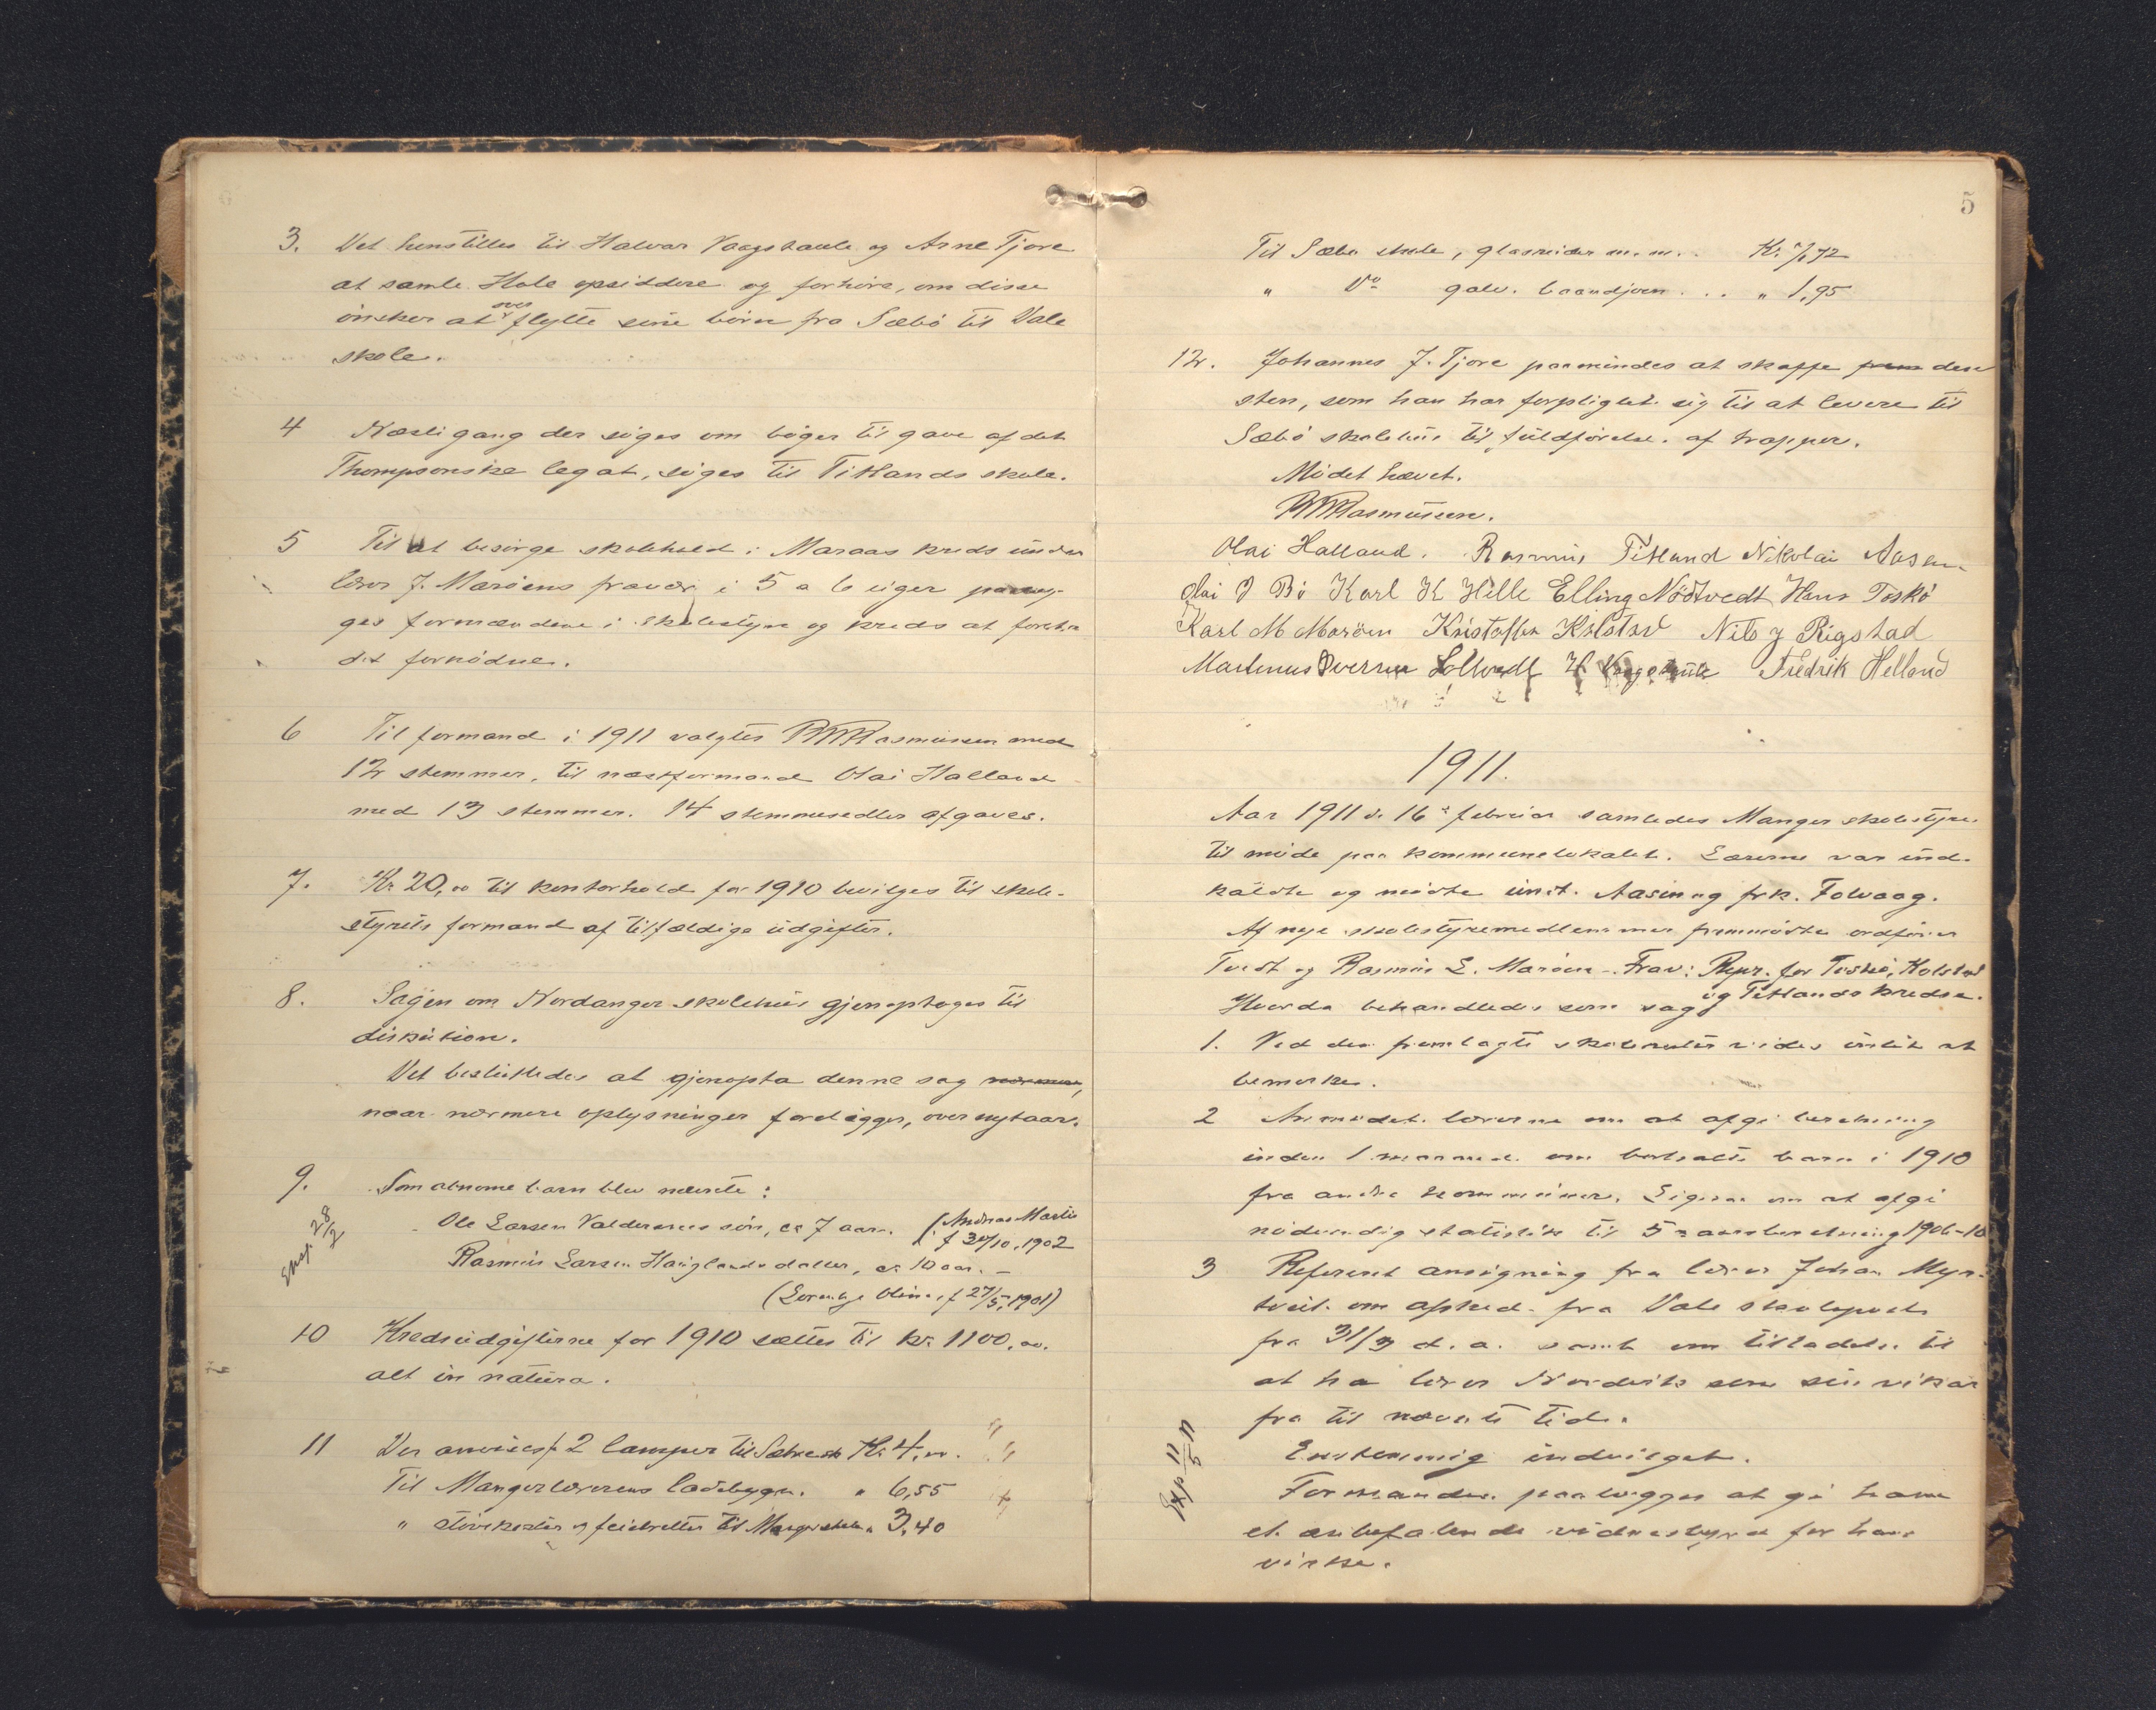 3. Det henstilles til Halvar Vaagstaule og Arne Tjore
at samle Hole opsiddere og forhöre, om disse
önsker at over flytte sine börn fra Sæbö til Vale
skole.
4 Næste gang der söges om böger til gave af det
Thompsonske legat, söges til Titlands skole.
5 Til at besörge skolehold i Maraas kreds under
lærer J. Maröens fravær i 5 a 6 uger paalæg-
ges formændene i skolestyre og kreds at foreta
det fornödne.
6 Til formand i 1911 valgtes Rasmussen med
12 stemmer, til næstformand Olai Halland
med 13 stemmer. 14 stemmesedler afgaves.
7. Kr 20,00 til kontorhold for 1910 bevilges til skole-
styrets formand af tilfældige udgifter.
8. Sagen om Nordanger skolehus gjenoptoges til
diskusion.
Det besluttedes at gjenopta denne sag
naar nærmere oplysninger foreligger, over nytaar.
9. Som abnorme barn blev nævnte:
Ole Larsen Valdersnes sön, ca 7 aar. (Andreas Martin
f 30/10, 1902
Exp. 28/2
Rasmus Larsen Hauglands datter, ca 10 aar. —
Oline, f 27/5, 1901)
10 Kredsudgifterne for 1910 sættes til kr. 1100,00.
alt in natura.
11 Der anvises f. 2 lamper til Kr. 4,00.
Til Mangerlærerens ladebygn. " 6,55
" störekoster og feiebretter til Manger skole " 3,40
5
Til Sæbö skole, glasruder m. m. Kr. 72
" Do galv. baandjern ... " 1,95
12. Johannes J. Tjore paamindes at skaffe frem den
sten, som han har forpligtet sig til at levere til
Sæbö skolehus til fuldförelse af trapper.
Mödet hævet.
Rasmussen.
Olai Halland. Rasmus Titland Nikolai Aasen
Olai O Bö Karl K Hille Elling Nödtvedt Hans Toskö
Karl M Maröen Kristoffer Kolstad Nils J Rigstad
Martinus Sverren Fredrik Helland
1911.
Aar 1911 d. 16de februar samledes Manger skolestyre
til möde paa kommunelokalet. Lærerne var ind-
kaldte og mödte undt. Aasen og frk. Folvaag.
Af nye skolestyremedlemmer fremmödte ordförer
Tvedt og Rasmus L. Maröen. Frav: Repr. for Toskö, Kolstad
og Titlands kredse.
Hvorda behandledes som sag
1. Ved den fremlagte vides intet at
bemerke.
2 Anmodet lærerne om at afgi beretning
inden 1 maaned om bortsatte barn i 1910
fra andre kommuner. Ligesaa om at afgi
nödvendig statistik til 5 aarsberetning 1906-10
3 Referert ansögning fra lærer Johan Myr-
tveit om afsked fra Vale skolepost
fra 31/3 d. a. samt om tilladelse til
at ha lærer Nordvik som sin vikar
fra til nævnte tid.
Exp 11/5 11
Enstemmig indvilget.
Formanden paalægges at gi ham
et anbefalende vidnesbyrd for hans
virke.